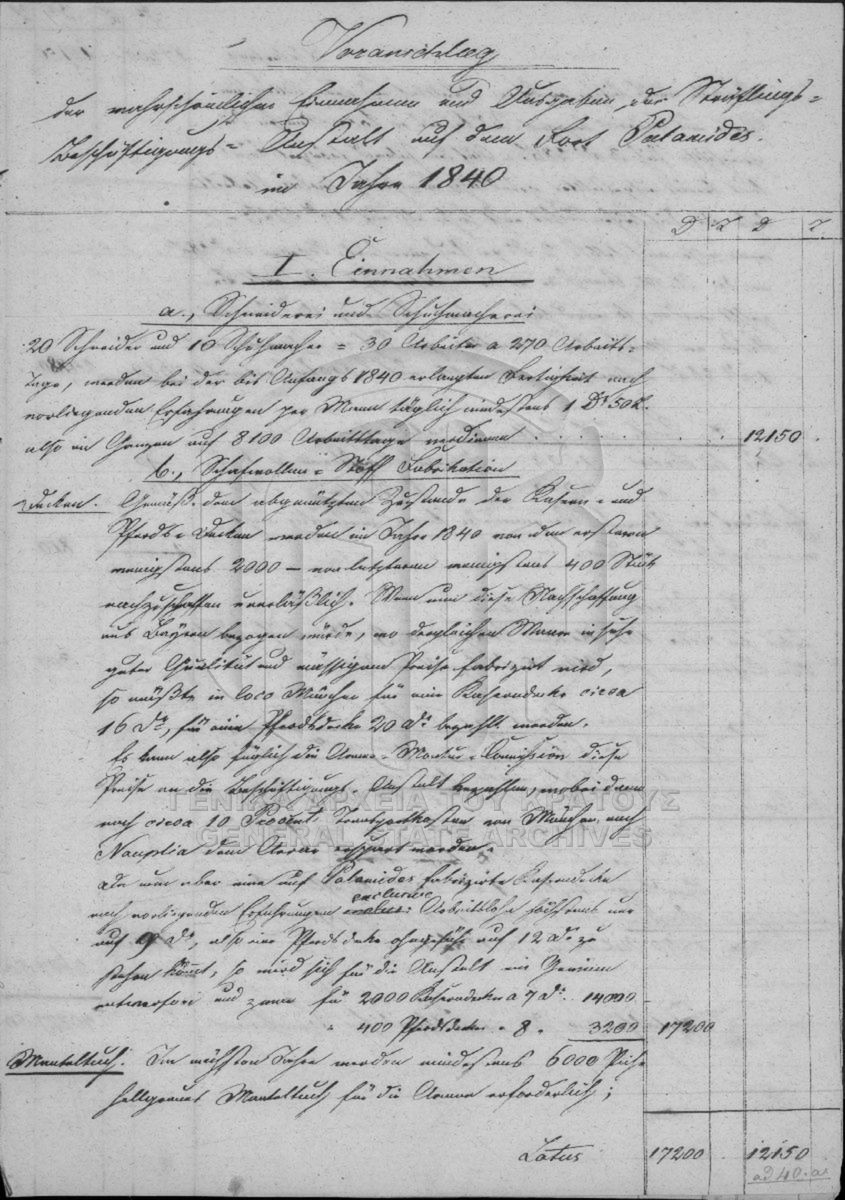 Voranschlag
der wahrscheinlichen Einnahmen und Ausgaben der Sträflings=
Beschäftigungs=Anstalt auf dem Fort Palamides.
im Jahre 1840
D. L. D. L.
I. Einnahmen
a., Schneiderei und Schuhmacherei
20 Schneider und 10 Schuhmacher = 30 Arbeiter a 270 Arbeits=
Tage, werden bei der bis Anfangs 1840 erlangten Fertigkeit nach
vorliegenden Erfahrungen per Mann täglich mindestens 1 Dr 50 L.
also im Ganzen auf 8100 Arbeittage verdienen 12150
b., Schafwollen=Stoff Fabrikation
Decken. Gemäß dem abgenützten Zustande der Kasern- und
Pferds-Decken werden im Jahre 1840 von den ersteren
wenigstens 2000 — von letzteren wenigstens 400 Stück
nachzuschaffen unerläßlich. Wenn nun diese Nachschaffung
aus Bayern bezogen würde, wo dergleichen Waare in sehr
guter Qualität und mässigem Preise fabrizirt wird,
so müßte in loco München für eine Kaserndecke circa
16 Dr, für eine Pferdsdecke 20 Dr bezahlt werden.
Es kann also füglich die Armee-Montur-Commission diese
Preise an die Beschäftigungs-Anstalt bezahlen, wobei dann
noch circa 10 Procent Transportkosten von München nach
Nauplia dem Aerar erspart werden.
ΓΕΝΙΚΑ ΑΡΧΕΙΑ ΤΟΥ ΚΡΑΤΟΥΣ
GENERAL STATE ARCHIVES
Da nun aber eine auf Palamides fabrizirte Kaserndecke
nach vorliegenden Erfahrungen exclusive Arbeitslohn höchstens nur
auf 9 Dr, also eine Pferdsdecke ohngefähr auf 12 Dr zu
stehen kömt, so wird sich für die Anstalt ein Gewinn
und zwar für 2000 Kaserndecken a 7 Dr. 14000
" 400 Pferdsdecken " 8 " 3200 17200
Manteltuch. Im nächsten Jahre werden mindestens 6000 Piche
hellgraues Manteltuch für die Armee erforderlich;
Latus 17200 12150